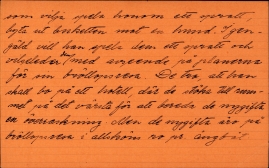 som vilja spela honom ett spratt,
byta ut buketten mot en hund. I gen-
gäld vill han spela dem ett spratt och
med avseende på planerna
för sin bröllopsresa. De tro, att han
skall bo på ett hotell, där de stöka till rum-
met på det värsta för att bereda de nygifta
en överraskning. Men de nygifta äro på
bröllopsresa i allsköns ro pr ångbåt.